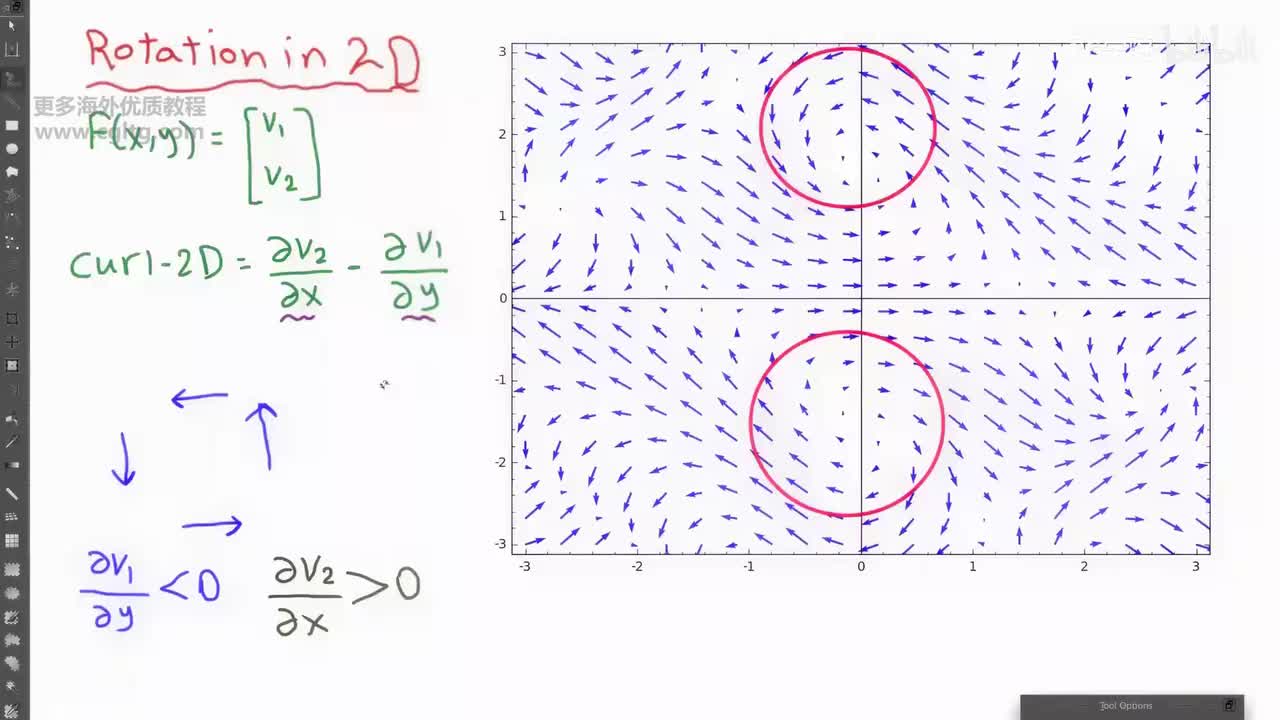 Rotation in 2D
更多海外优质教程
www.cgkg.com
F(x,y) = [v₁ v₂]
curl-2D = ∂v₂/∂x - ∂v₁/∂y
∂v₁/∂y < 0 ∂v₂/∂x > 0
3
2
1
0
-1
-2
-3
-3 -2 -1 0 1 2 3
Tool Options